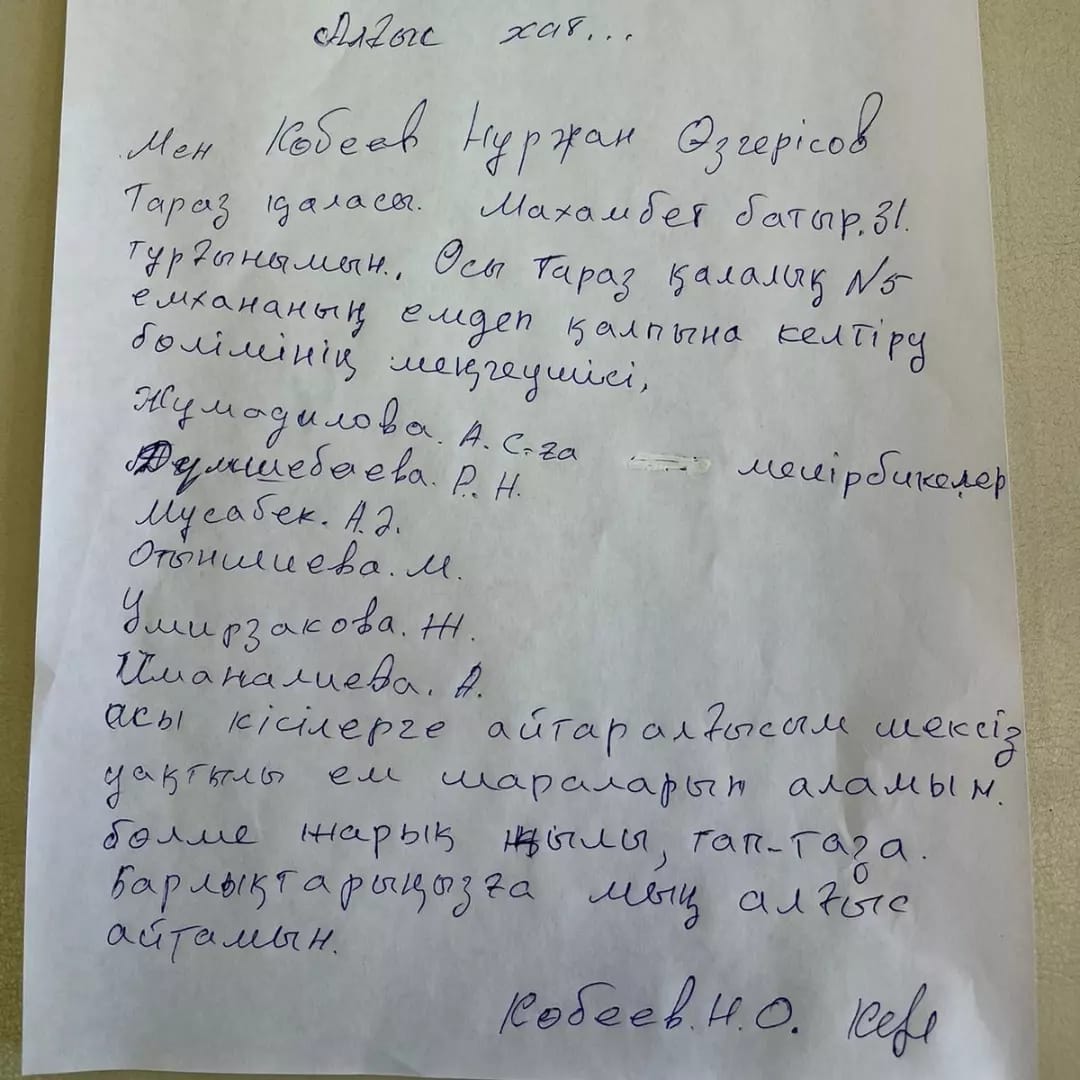 Алғыс хат...
Мен Кобеев Нуржан Өзгерісов
Тараз қаласы. Махамбет батыр. 31.
тұрғынымын., Осы Тараз қалалық №5
емхананың емдеп қалпына келтіру
бөлімінің меңгеушісі,
Жумадилова. А. С-ға мейірбикелер
Думшебаева. Р. Н.
Мусабек. А.Ә.
Отыншиева. М.
Умирзакова. Ж.
Иманалиева. А.
осы кісілерге айтар алғысым шексіз
уақтылы ем шараларын аламын.
бөлме жарық жылы, тап-таза.
Барлықтарыңызға мың алғыс
айтамын.
Кобеев. Н. О.